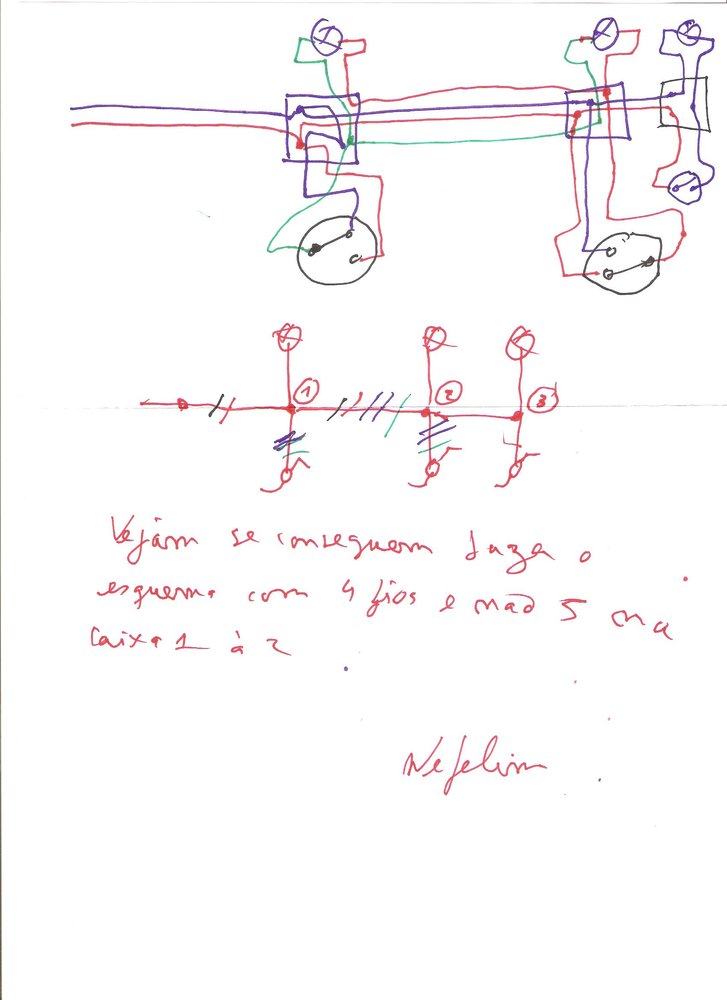 1 2 3
Vejam se conseguem fazer o
esquema com 4 fios e não 5 na
caixa 1 à 2
Nefelim